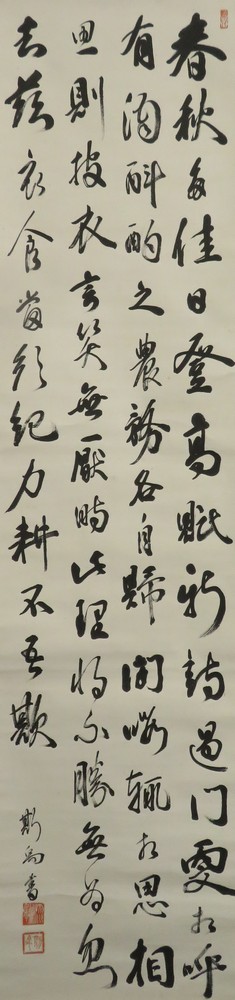 春秋多佳日登高賦新詩過門更相呼
有酒斟酌之農務各自歸閑暇輒相思相
思則披衣言笑無厭時此理將不勝無為忽
去茲衣食當須紀力耕不吾欺
斯為書